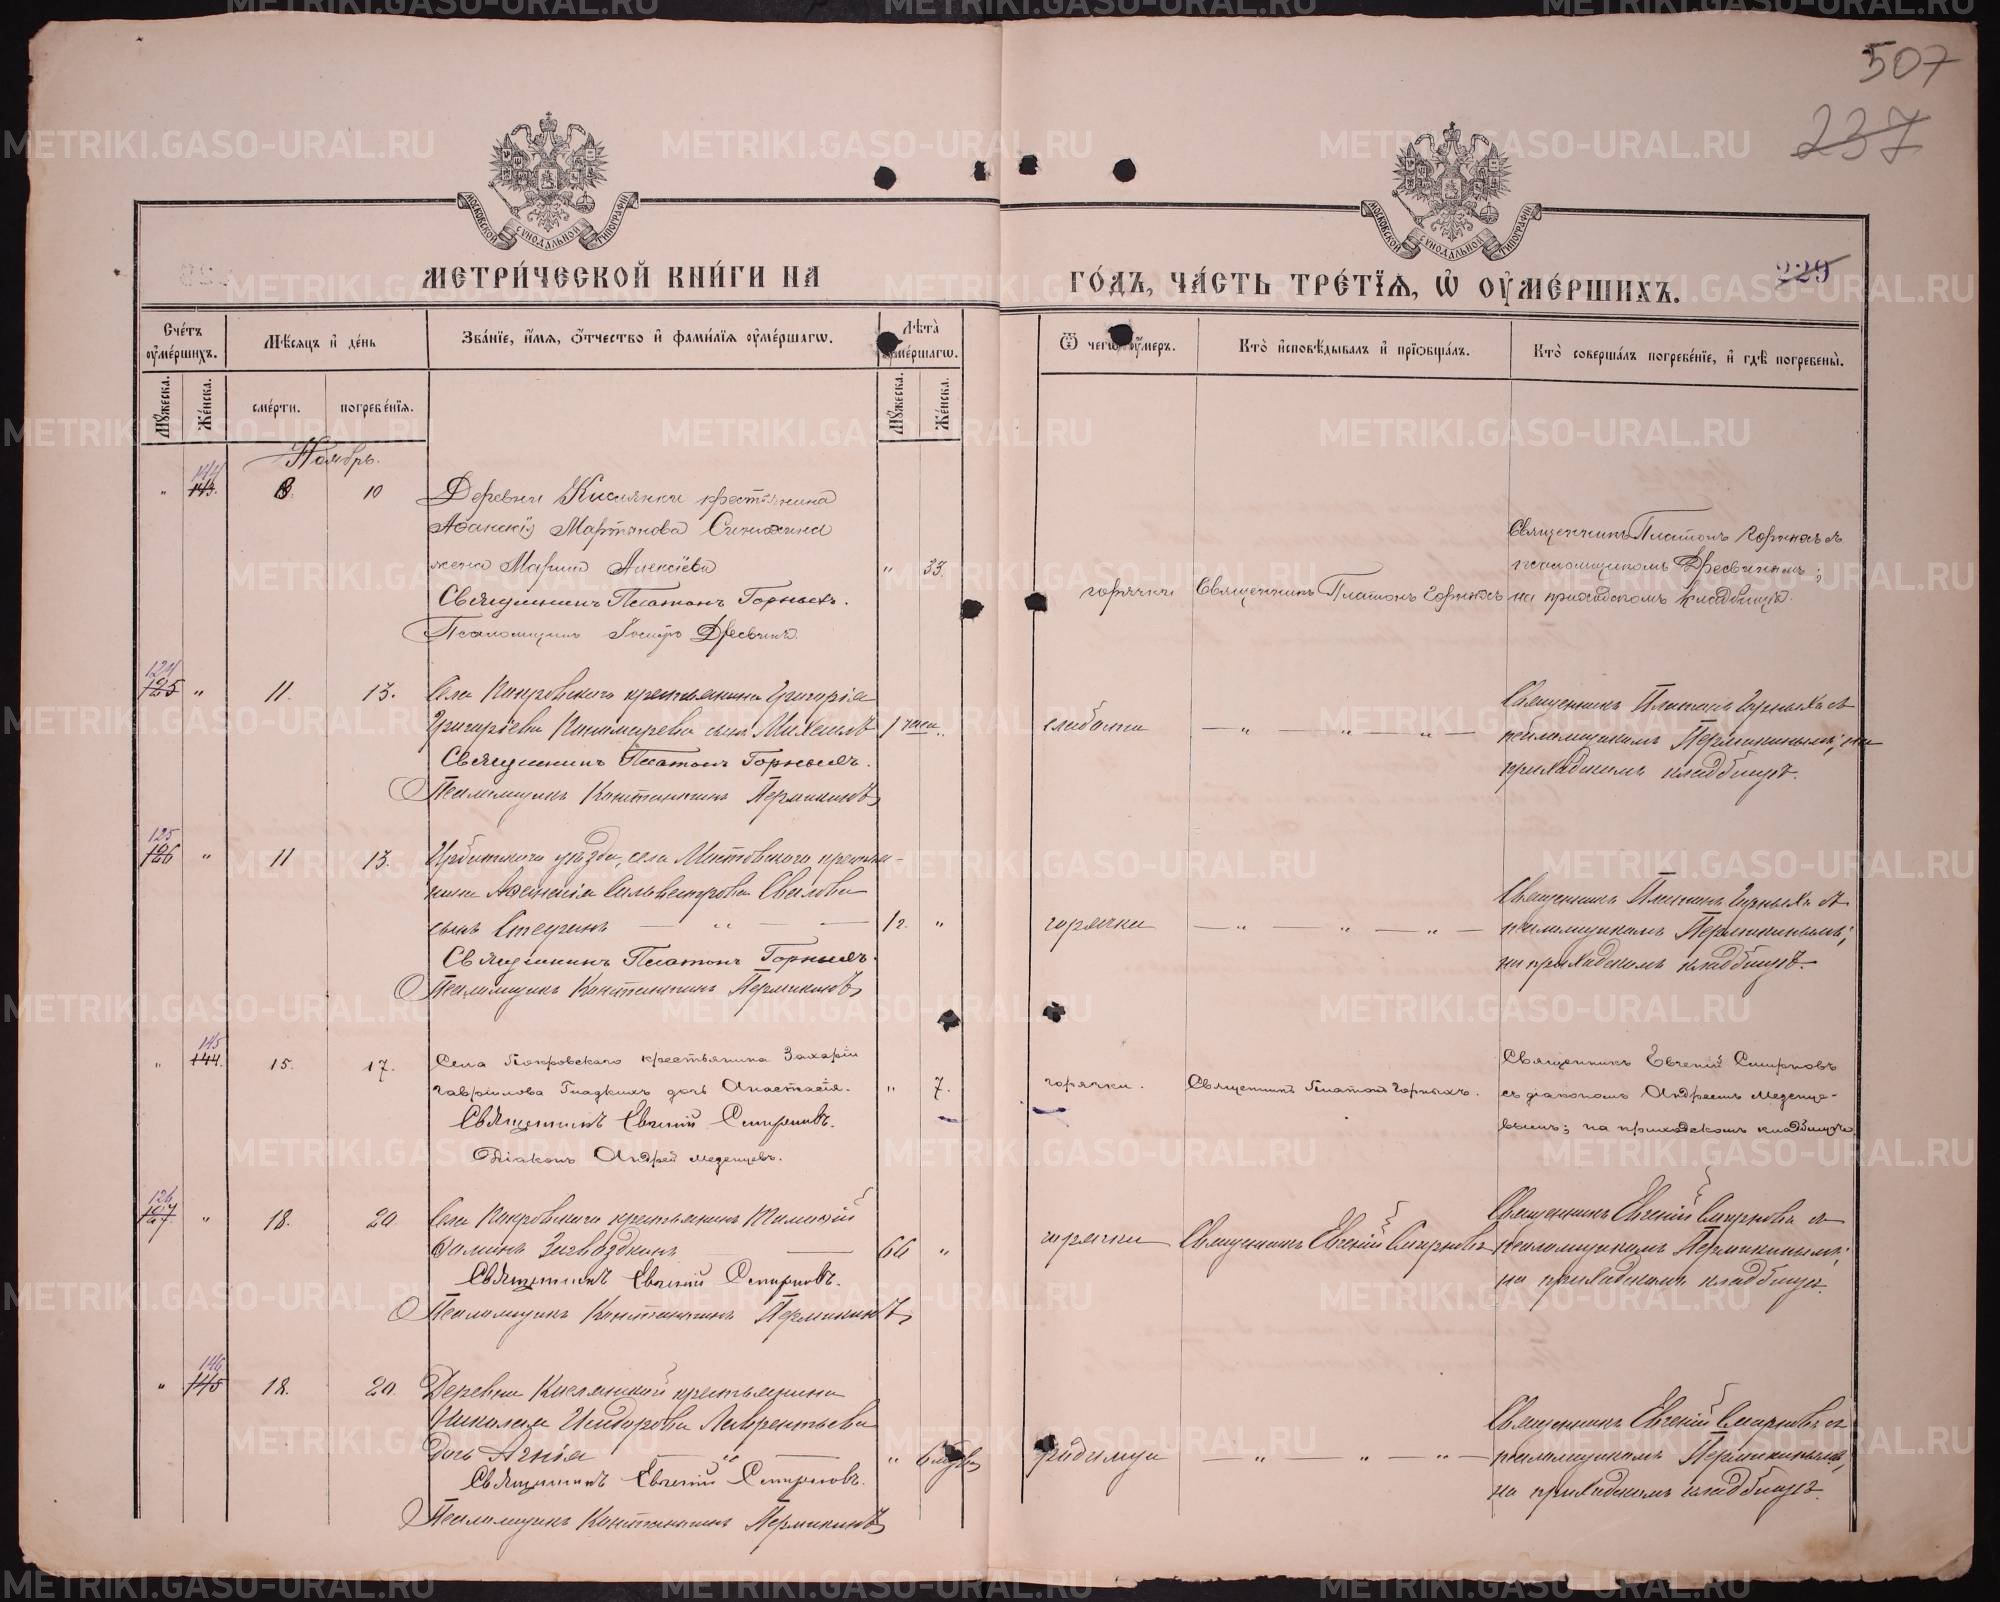 507
237
МОСКОВСКОЙ СУНОДАЛЬНОЙ ТИПОГРАФІИ
МОСКОВСКОЙ СУНОДАЛЬНОЙ ТИПОГРАФІИ
МЕТРИ́ЧЕСКОЙ КНИ́ГИ НА
ГО́ДЪ, ЧА́СТЬ ТРЕ́ТІЯ, Ѡ ОУМЕ́РШИХЪ.
229
Сче́тъ оуме́ршихъ.
Мѣсяцъ и де́нь
Зва́ніе, и́мя, о́тчество и фами́лія оуме́ршагѡ.
Лѣта̀ оуме́ршагѡ.
Ѿ чегѡ̀ оу́меръ.
Кто̀ исповѣ́дывалъ и пріѻбща́лъ.
Кто̀ соверша́лъ погребе́ніе, и гдѣ̀ погребены̀.
Мужеска.
Же́нска.
сме́рти.
погребе́нія.
Мужеска.
Же́нска.
Ноябрь.
144
" 143. 8. 10 Деревни Кислянки крестьянина
Мартынова
жена Марина Алексіева " 33.
Священникъ Платонъ Горныхъ.
Псаломщикъ Дресвинъ
горячки Священникъ Платонъ Горныхъ
Священникъ Платонъ Горныхъ съ
псаломщикомъ Дресвинымъ;
на приходскомъ кладбищѣ.
124
125 " 11. 13. Села Покровскаго крестьянина Григорія
Григоріева Пономарева сынъ Михаилъ 1 часа.
Священникъ Платонъ Горныхъ.
Псаломщикъ Константинъ Пермикинъ
слабости — " — " — " —
Священникъ Платонъ Горныхъ съ
псаломщикомъ Пермикинымъ; на
приходскомъ кладбищѣ.
125.
126 " 11 13. Ирбитскаго уѣзда, села крестья-
нина Афанасія Сильвестрова
сынъ — " — 1 г. "
Священникъ Платонъ Горныхъ.
Псаломщикъ Константинъ Пермикинъ
горячки — " — " — " —
Священникъ Платонъ Горныхъ съ
псаломщикомъ Пермикинымъ;
на приходскомъ кладбищѣ.
145
" 144. 15. 17. Села Покровскаго крестьянина Захаріи
Гавріилова Гладкихъ дочь Анастасія. " 7.
Священникъ Евгеній Смирновъ.
Діаконъ Андрей Меденцевъ.
горячки. Священникъ Платонъ Горныхъ.
Священникъ Евгеній Смирновъ
съ діакономъ Андреемъ Меденце-
вымъ; на приходскомъ кладбищѣ
126
127. " 18. 20. Села Покровскаго крестьянинъ Тимофей
— 66 "
Священникъ Евгеній Смирновъ.
Псаломщикъ Константинъ Пермикинъ
горячки Священникъ Евгеній Смирновъ
Священникъ Евгеній Смирновъ съ
псаломщикомъ Пермикинымъ;
на приходскомъ кладбищѣ.
146
" 145 18. 20. Деревни Кислянской крестьянина
Николая Исидорова Лаврентьева
дочь Агнія — " — "
Священникъ Евгеній Смирновъ.
Псаломщикъ Константинъ Пермикинъ
родимца — " — " — " —
Священникъ Евгеній Смирновъ съ
псаломщикомъ Пермикинымъ,
на приходскомъ кладбищѣ.
METRIKI.GASO-URAL.RU